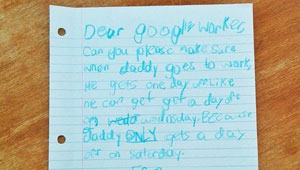 Dear google worker
Can you please make sure
when daddy goes to work,
He gets one day off like
he can get get a day off
on wedo wednesday. BECause
daddy ONLY gets a day
off on saturday.